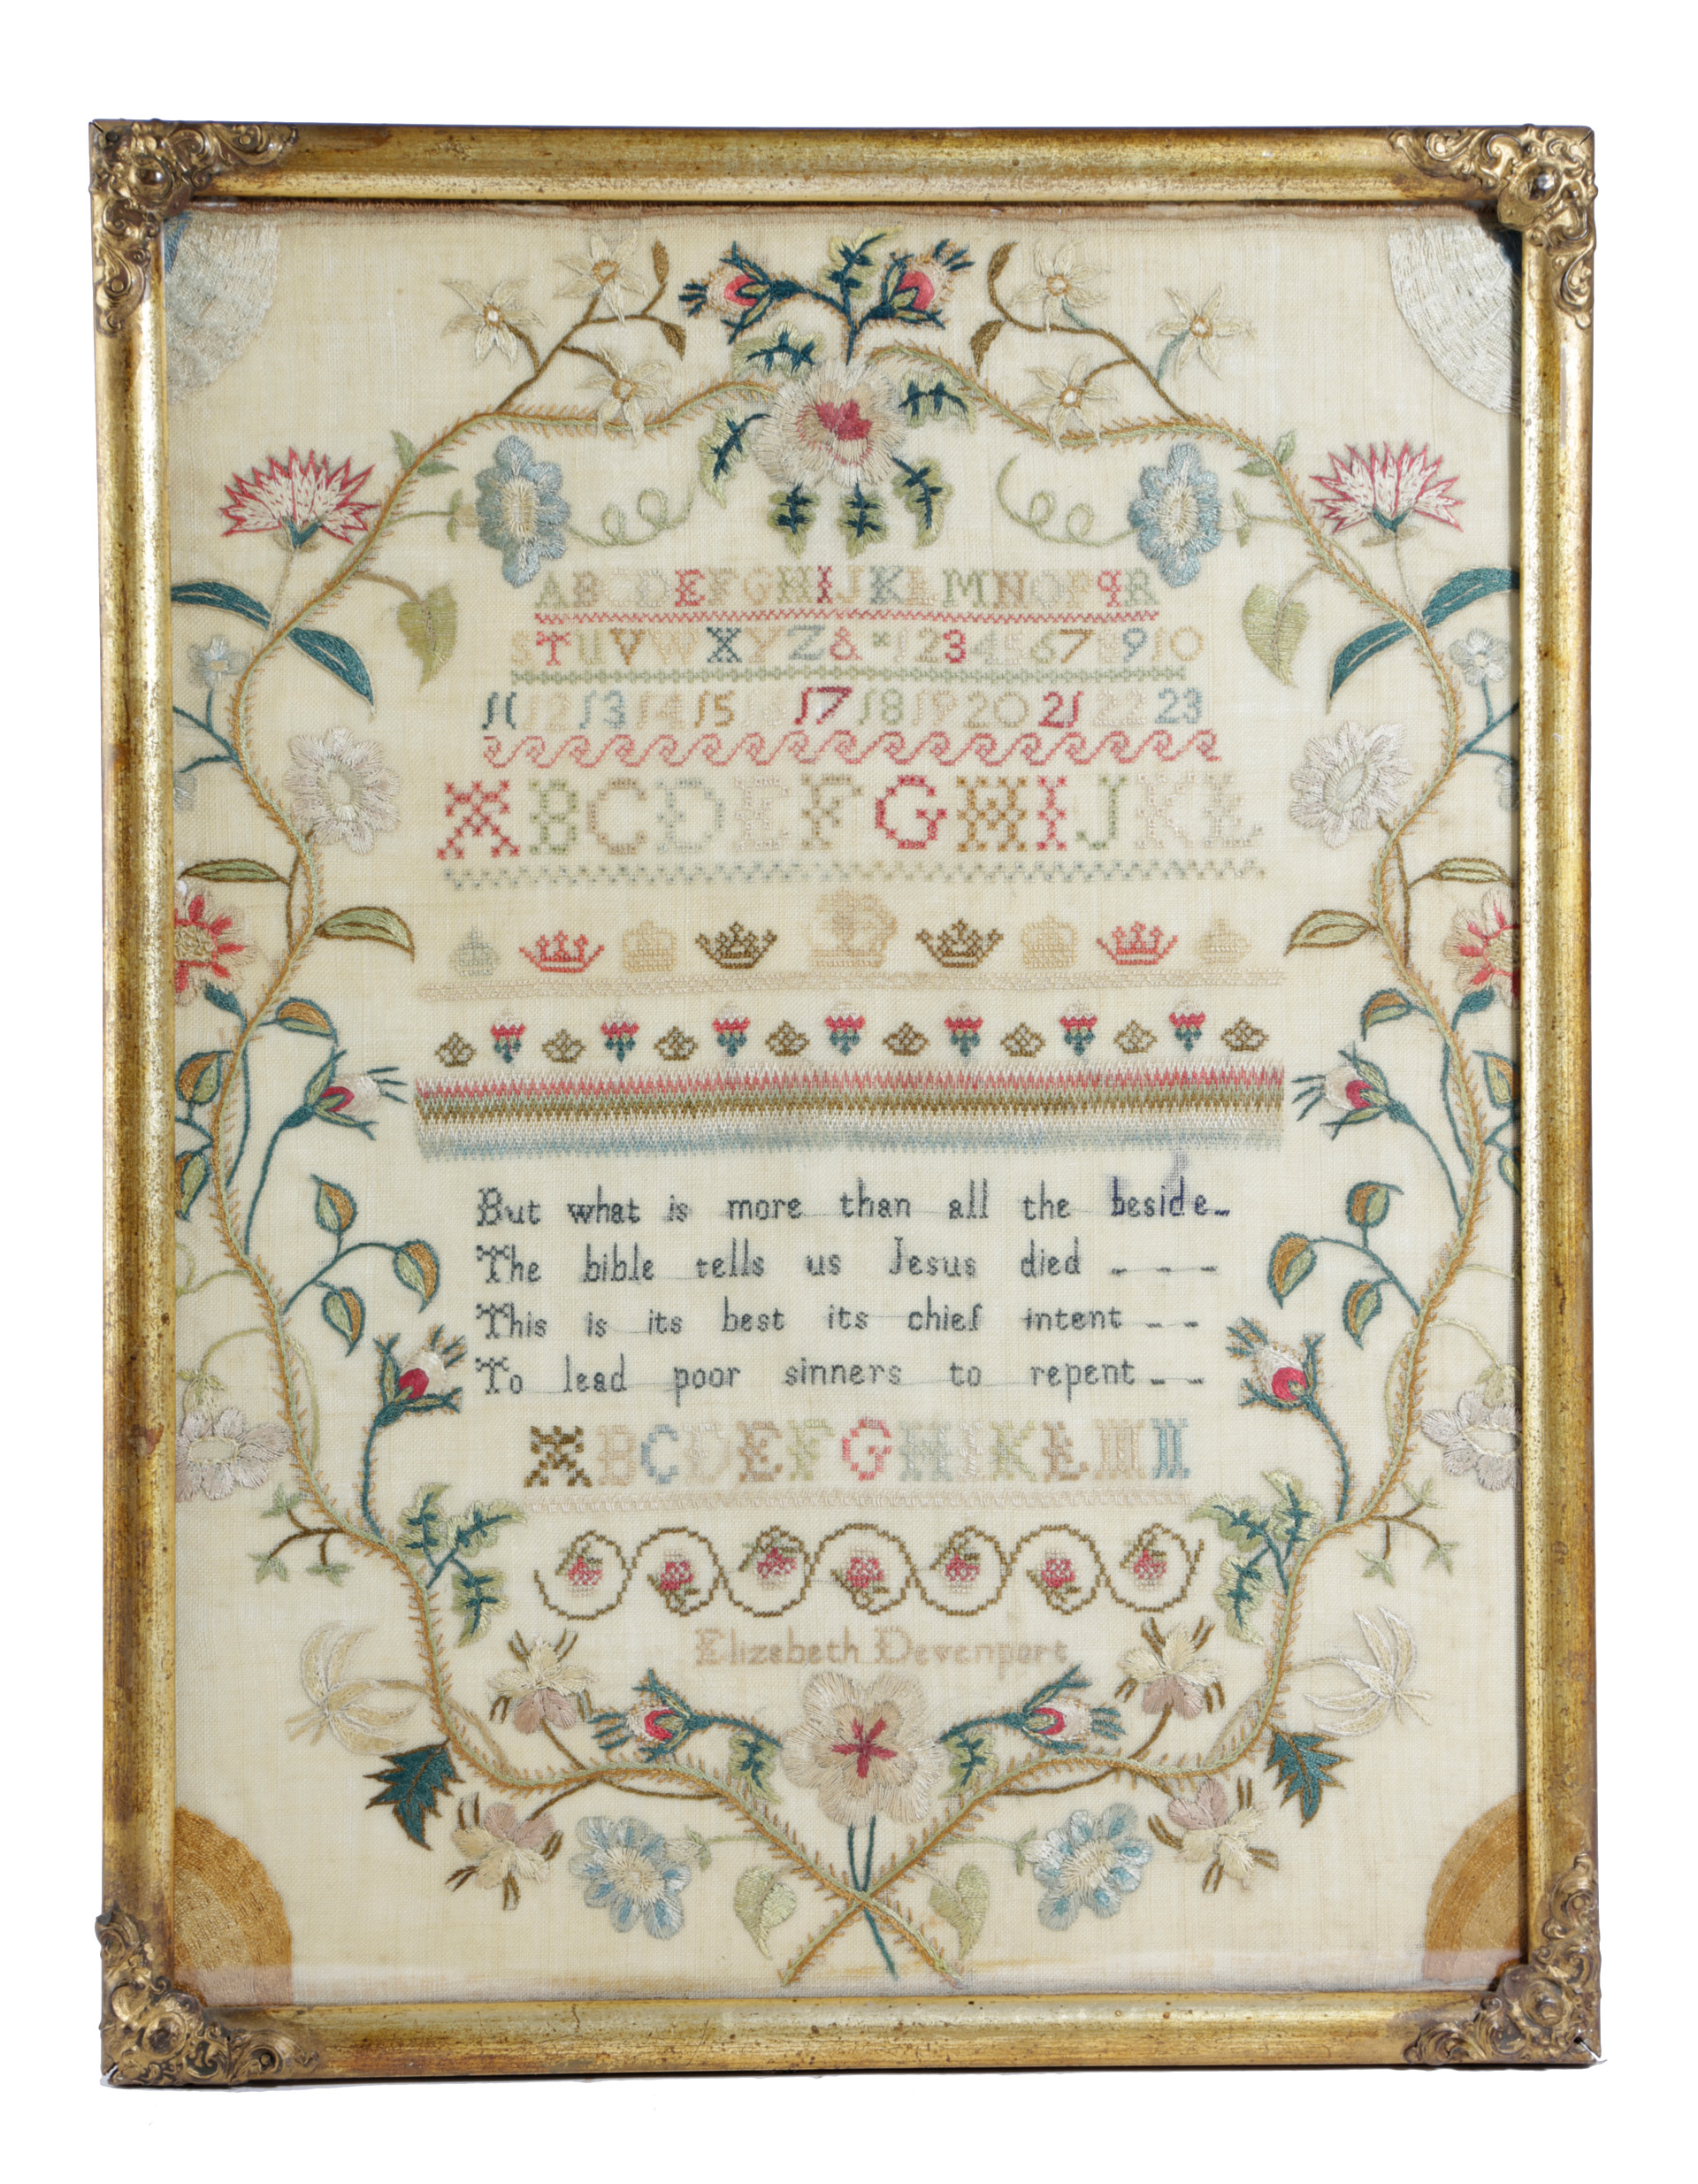 ABCDEFGHIJKLMNOPqR
STUVWXYZ& 12345678910
11 12 13 14 15 16 17 18 19 20 21 22 23
ABCDEFGHIJKL
But what is more than all the beside
The bible tells us Jesus died - - -
This is its best its chief intent - -
To lead poor sinners to repent - -
ABCDEFGHIKLMN
Elizebeth Devenport